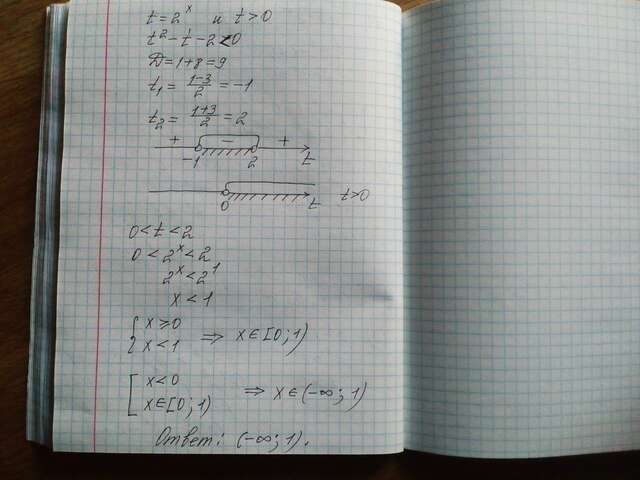 t = 2^x и t > 0
t² - t - 2 < 0
D = 1 + 8 = 9
t₁ = (1-3)/2 = -1
t₂ = (1+3)/2 = 2
+ - +
-1 2 t
0 t t > 0
0 < t < 2
0 < 2^x < 2
2^x < 2^1
x < 1
{ x ≥ 0
{ x < 1 ⇒ x ∈ [0; 1)
[ x < 0
[ x ∈ [0; 1) ⇒ x ∈ (-∞; 1)
Ответ: (-∞; 1).